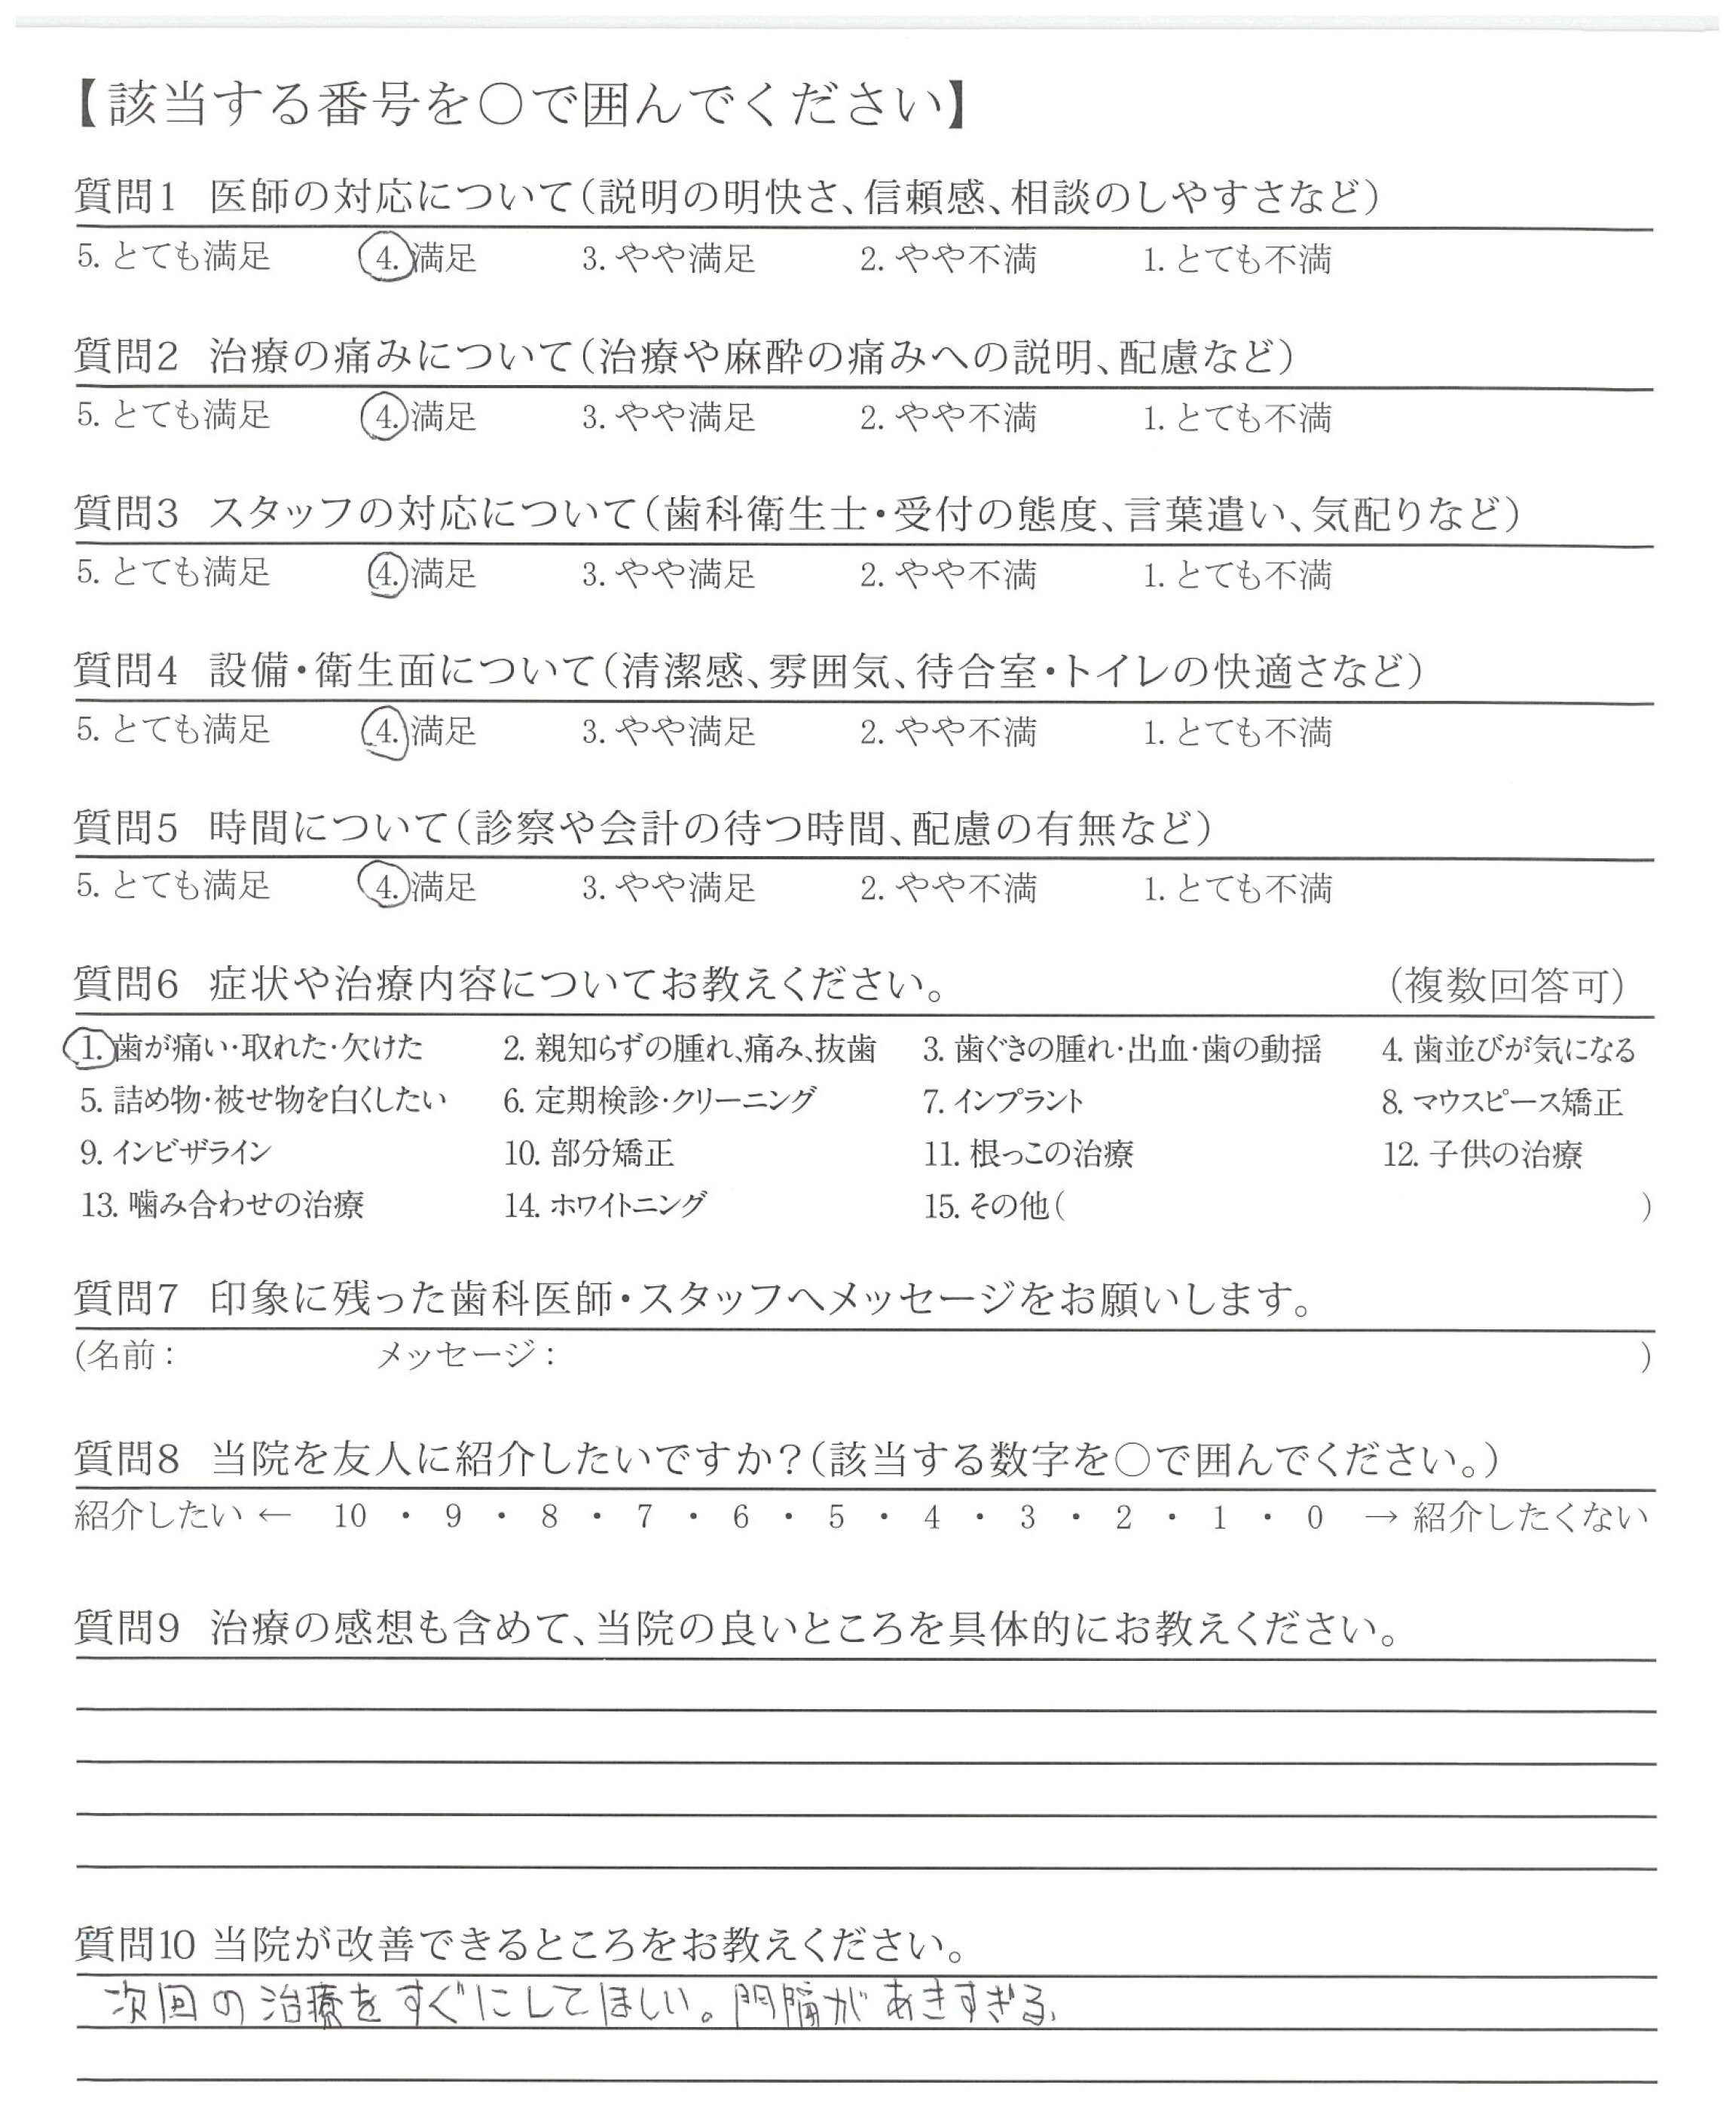 【該当する番号を○で囲んでください】
質問1 医師の対応について(説明の明快さ、信頼感、相談のしやすさなど)
5. とても満足 4. 満足 3. やや満足 2. やや不満 1. とても不満
質問2 治療の痛みについて(治療や麻酔の痛みへの説明、配慮など)
5. とても満足 4. 満足 3. やや満足 2. やや不満 1. とても不満
質問3 スタッフの対応について(歯科衛生士・受付の態度、言葉遣い、気配りなど)
5. とても満足 4. 満足 3. やや満足 2. やや不満 1. とても不満
質問4 設備・衛生面について(清潔感、雰囲気、待合室・トイレの快適さなど)
5. とても満足 4. 満足 3. やや満足 2. やや不満 1. とても不満
質問5 時間について(診察や会計の待つ時間、配慮の有無など)
5. とても満足 4. 満足 3. やや満足 2. やや不満 1. とても不満
質問6 症状や治療内容についてお教えください。 (複数回答可)
1. 歯が痛い・取れた・欠けた 2. 親知らずの腫れ、痛み、抜歯 3. 歯ぐきの腫れ・出血・歯の動揺 4. 歯並びが気になる
5. 詰め物・被せ物を白くしたい 6. 定期検診・クリーニング 7. インプラント 8. マウスピース矯正
9. インビザライン 10. 部分矯正 11. 根っこの治療 12. 子供の治療
13. 噛み合わせの治療 14. ホワイトニング 15. その他( )
質問7 印象に残った歯科医師・スタッフへメッセージをお願いします。
(名前: メッセージ: )
質問8 当院を友人に紹介したいですか?(該当する数字を○で囲んでください。)
紹介したい ← 10 ・ 9 ・ 8 ・ 7 ・ 6 ・ 5 ・ 4 ・ 3 ・ 2 ・ 1 ・ 0 → 紹介したくない
質問9 治療の感想も含めて、当院の良いところを具体的にお教えください。
質問10 当院が改善できるところをお教えください。
次回の治療をすぐにしてほしい。間隔があきすぎる、